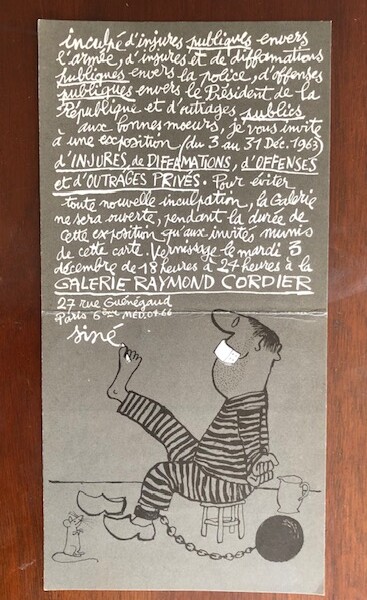 inculpé d'injures publiques envers
l'armée, d'injures et de diffamations
publiques envers la police, d'offenses
publiques envers le Président de la
République et d'outrages publics
aux bonnes mœurs, je vous invite
à une exposition (du 3 au 31 Déc. 1963)
d'INJURES, de DIFFAMATIONS, d'OFFENSES
et d'OUTRAGES PRIVÉS. Pour éviter
toute nouvelle inculpation, la Galerie
ne sera ouverte, pendant la durée de
cette exposition qu'aux invités munis
de cette carte. Vernissage le mardi 3
décembre de 18 heures à 24 heures à la
GALERIE RAYMOND CORDIER
27 rue Guénégaud
Paris 6ème MED.04-66
siné